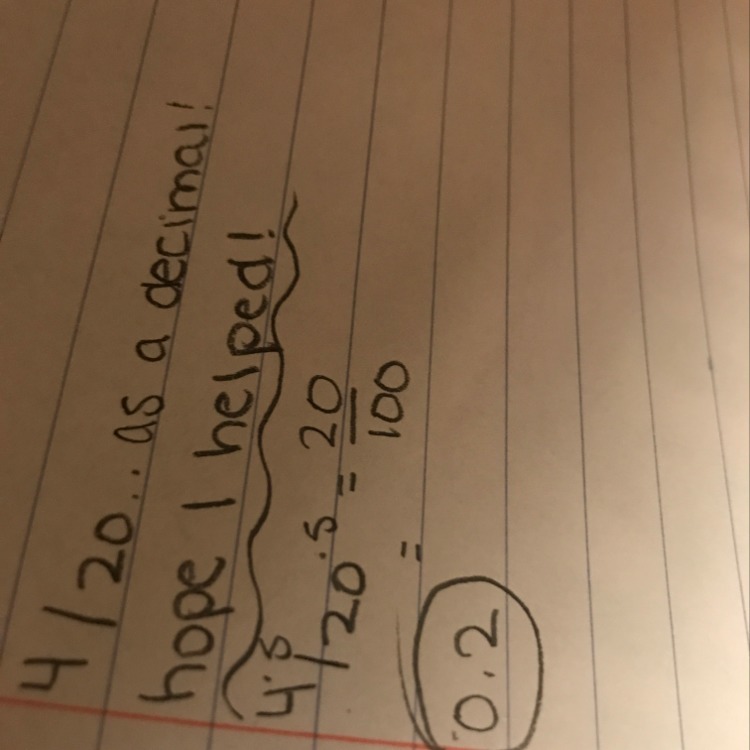 4/20.. as a decimal!
hope I helped!
4·5/20·5 = 20/100
=
0.2